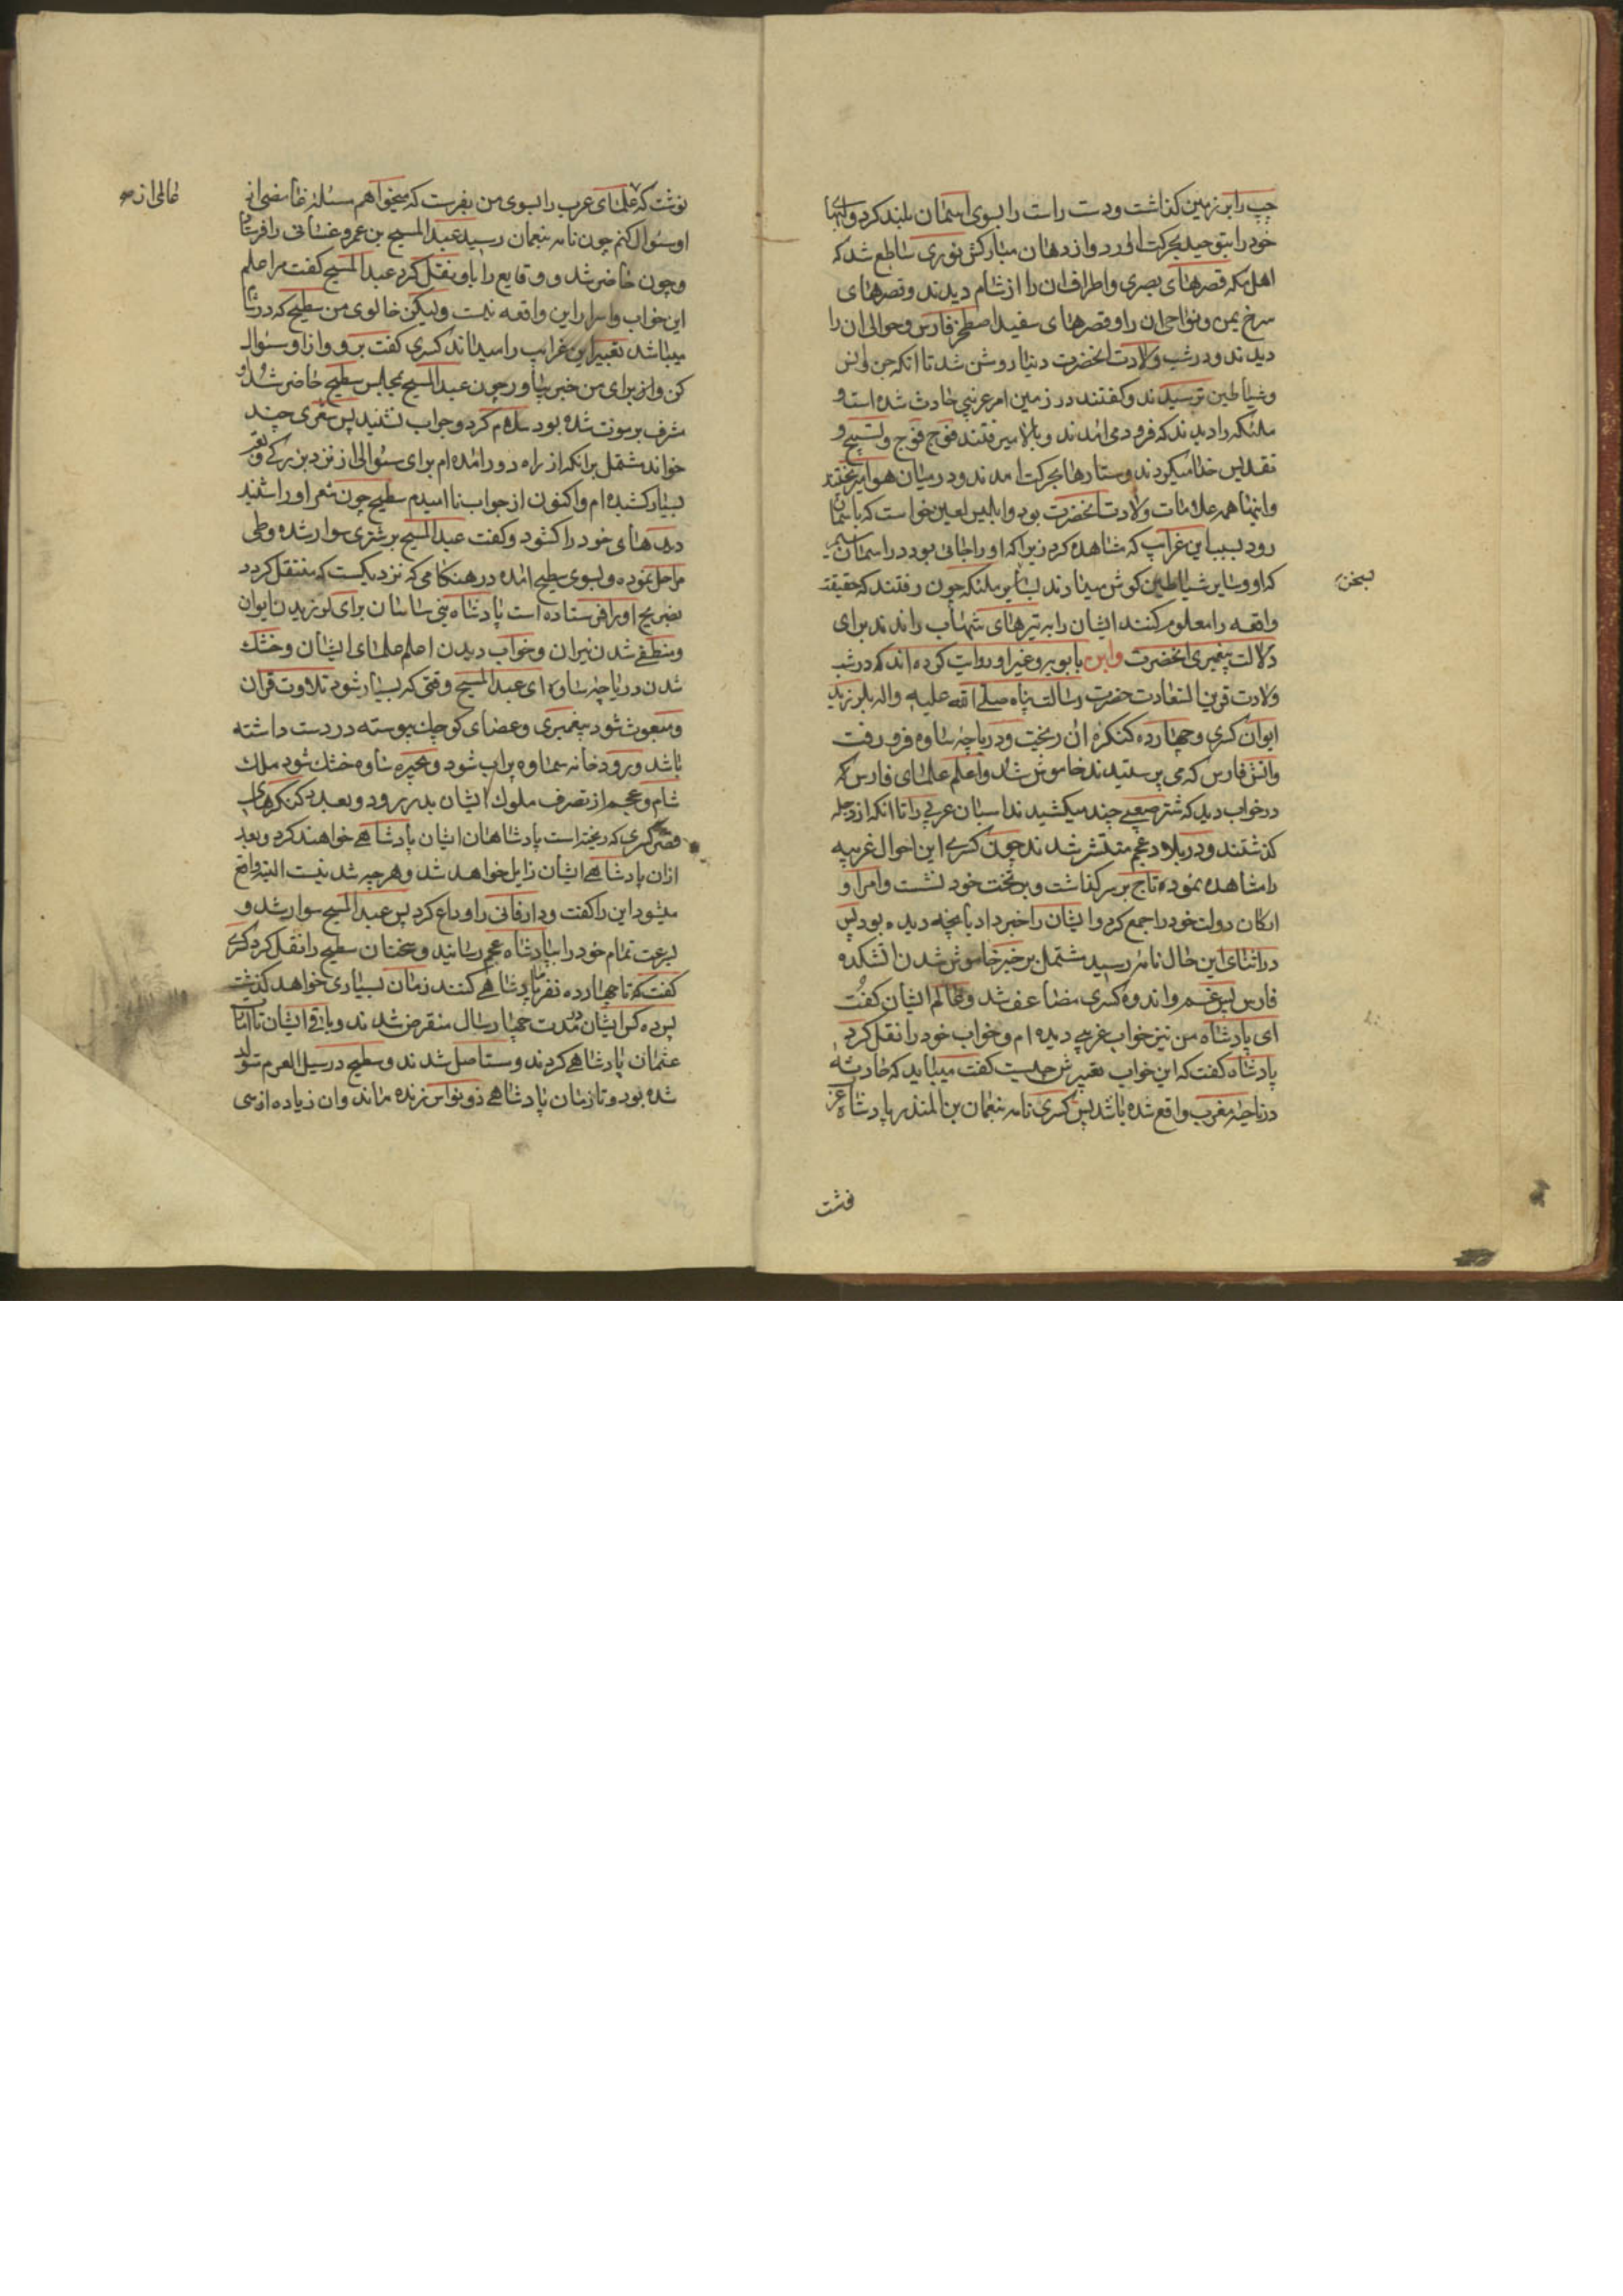 چپ را بر زمین کذاشت و دست راست را بسوی اسمان بلند کرد و لبهای
خود را بتوحید بحرکت اورد و از دهان مبارکش نوری ساطع شد که
اهل مکه قصرهای بصری و اطراف ان را از شام دیدند و قصرهای
سرخ یمن و نواحی ان را و قصرهای سفید اصطخر فارس و حوالی ان را
دیدند و در شب ولادت انحضرت دنیا روشن شد تا انکه جن و انس
و شیاطین ترسیدند و کفتند در زمین امر غریبی حادث شده است و
ملئکه را دیدند که فرود می امدند و بالا میرفتند فوج فوج و تسبیح و
تقدیس خدا میکردند و ستارها بحرکت امدند و در میان هوا میریختند
و اینها همه علامات ولادت انحضرت بود و ابلیس لعین خواست که باسمان
رود بسبب این غرایب که مشاهده کرد زیرا که او را جائی بود در اسمان سیم
که او و سایر شیاطین کوش میدادند بسخن ملئکه چون رفتند که حقیقت
واقعه را معلوم کنند ایشان را بتیرهای شهاب راندند برای
دلالت پیغمبری انحضرت و ابن بابویه و غیر او روایت کرده اند که در شب
ولادت قرین السعادت حضرت رسالت پناه صلی الله علیه واله بلرزید
ایوان کسری و چهارده کنکره ان ریخت و دریاچه ساوه فرو رفت
و اتش فارس که می پرستیدند خاموش شد و اعلم علمای فارس که
در خواب دید که شتر صعبی چند میکشیدند اسبان عربی را تا انکه از دجله
کذشتند و در بلاد عجم منتشر شدند چون کسری این احوال غریبه
را مشاهده نمود تاج بر سر کذاشت و بر تخت خود نشست و امرا و
ارکان دولت خود را جمع کرد و ایشان را خبر داد بانچه دیده بود پس
در اثنای این حال نامه رسید مشتمل بر خبر خاموش شدن اتشکده
فارس پس غم و اندوه کسری مضاعف شد و عالم ایشان کفت
ای پادشاه من نیز خواب غریبی دیده ام و خواب خود را نقل کرد
پادشاه کفت که این خواب تعبیرش چیست کفت میباید که حادثه
در ناحیه مغرب واقع شده باشد پس کسری نامه بنعمان بن المنذر پادشاه عرب
بسخن
نوشت که علمای عرب را بسوی من بفرست که میخواهم مسئله غامضی از
او سئوال کنم چون نامه بنعمان رسید عبد المسیح بن عمرو غسانی را فرستاد
و چون حاضر شد و وقایع را باو نقل کرد عبد المسیح کفت مرا علم
این خواب و اسرار این واقعه نیست ولیکن خالوی من سطیح که در شام
میباشد تعبیر این غرایب را میداند کسری کفت برو و از او سئوال
کن و از برای من خبر بیاور چون عبد المسیح بمجلس سطیح حاضر شد او
مشرف بر موت شده بود سلام کرد و جواب نشنید پس شعری چند
خواند مشتمل بر انکه از راه دور امده ام برای سئوالی از نزد بزرکی و تعب
بسیار کشیده ام و اکنون از جواب نا امیدم سطیح چون شعر او را شنید
دیدهای خود را کشود و کفت عبد المسیح بر شتری سوار شده و طی
مراحل نموده و بسوی سطیح امده در هنکامی که نزدیکست که منتقل کردد
بضریح او را فرستاده است پادشاه بنی ساسان برای لرزیدن ایوان
و منطفی شدن نیران و خواب دیدن اعلم علمای ایشان و خشک
شدن دریاچه ساوه ای عبد المسیح وقتی که بسیار شود تلاوت قران
و مبعوث شود پیغمبری و عصای کوچک پیوسته در دست داشته
باشد و رودخانه سماوه پراب شود و بحیره ساوه خشک شود ملک
شام و عجم از تصرف ملوک ایشان بدر رود و بعدد کنکرهای
قصر کسری که ریخته است پادشاهان ایشان پادشاهی خواهند کرد و بعد
ازان پادشاهی ایشان زایل خواهد شد و هر چه شدنیست البته واقع
میشود این را کفت و دار فانی را وداع کرد پس عبد المسیح سوار شد و
بسرعت تمام خود را بپادشاه عجم رسانید و سخنان سطیح را نقل کرد کسری
کفت که تا چهارده نفر ما پادشاهی کنند زمان بسیاری خواهد کذشت
پس ده کس ایشان در مدت چهار سال منقرض شدند و باقی ایشان تا امارت
عثمان پادشاهی کردند و مستاصل شدند و سطیح در سیل العرم متولد
شده بود و تا زمان پادشاهی ذو نواس زنده ماند و ان زیاده از سی